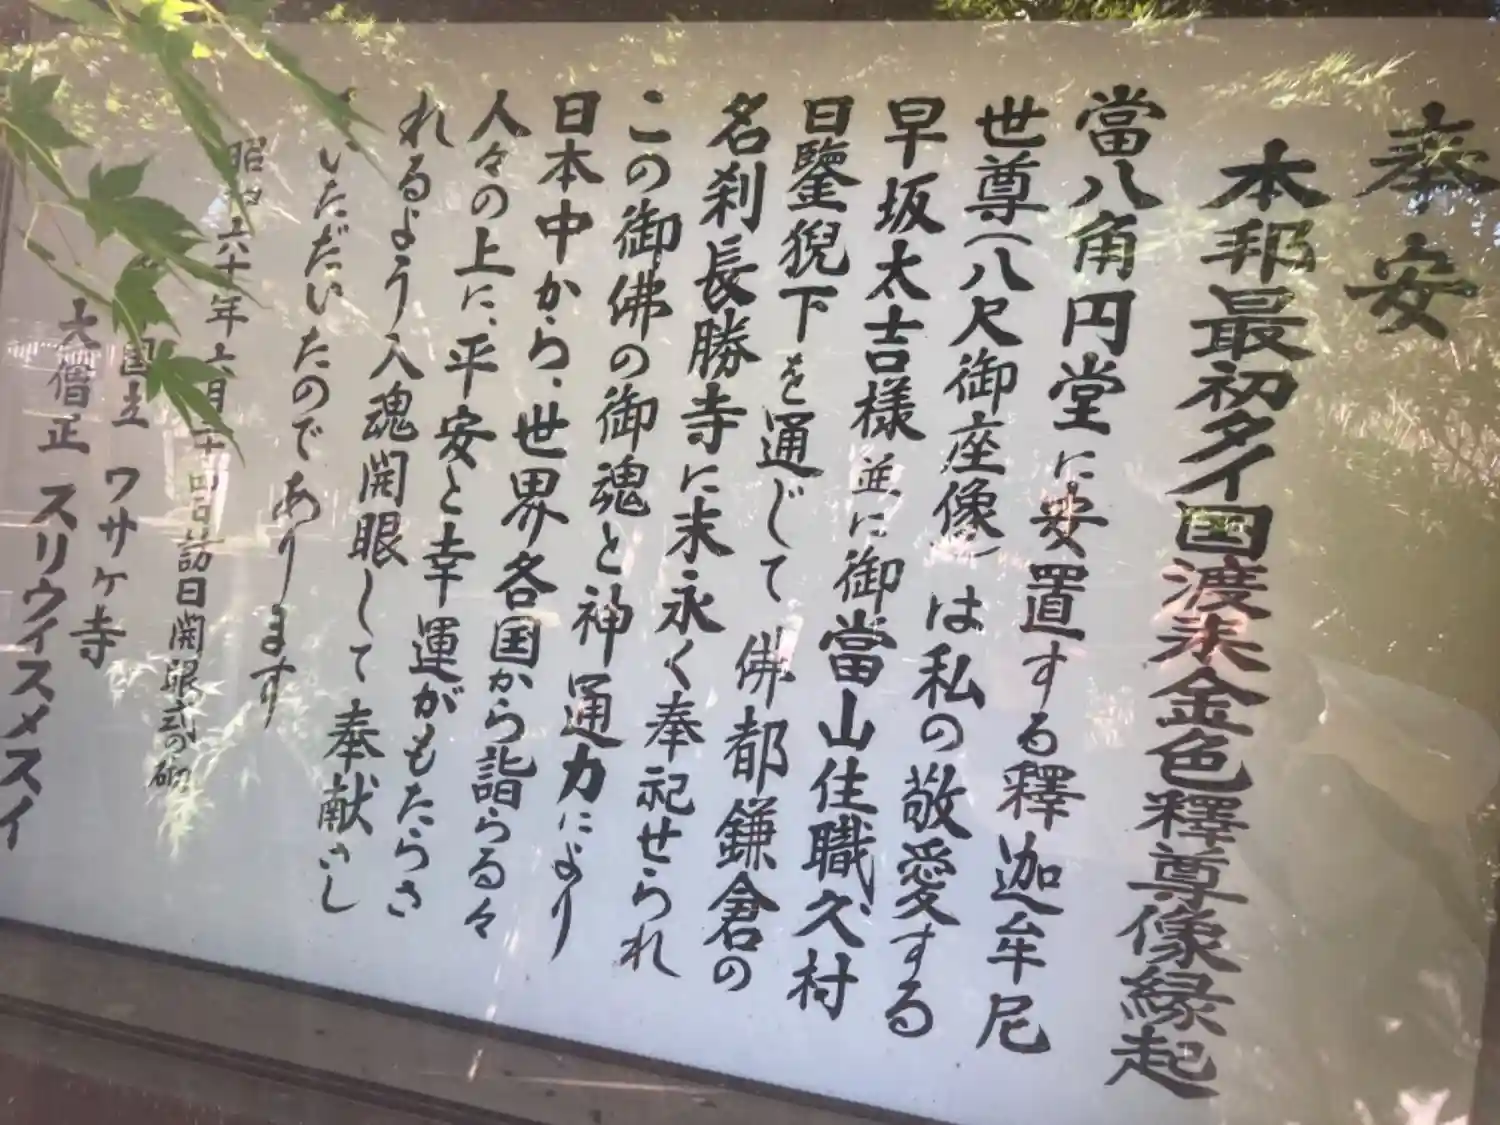 奉安
本邦最初タイ国渡来金色釋尊像縁起
當八角円堂に安置する釋迦牟尼
世尊(八尺御座像)は私の敬愛する
早坂太吉様並に御當山住職久村
日鑒猊下を通じて佛都鎌倉の
名刹長勝寺に末永く奉祀せられ
この御佛の御魂と神通力により
日本中から、世界各国から詣らる々
人々の上に、平安と幸運がもたらさ
れるよう入魂開眼して奉献さし
いただいたのであります
昭和六十年六月二十 訪日開眼式の砌
国立 ワサケ寺
大僧正 スリウィスメスイ